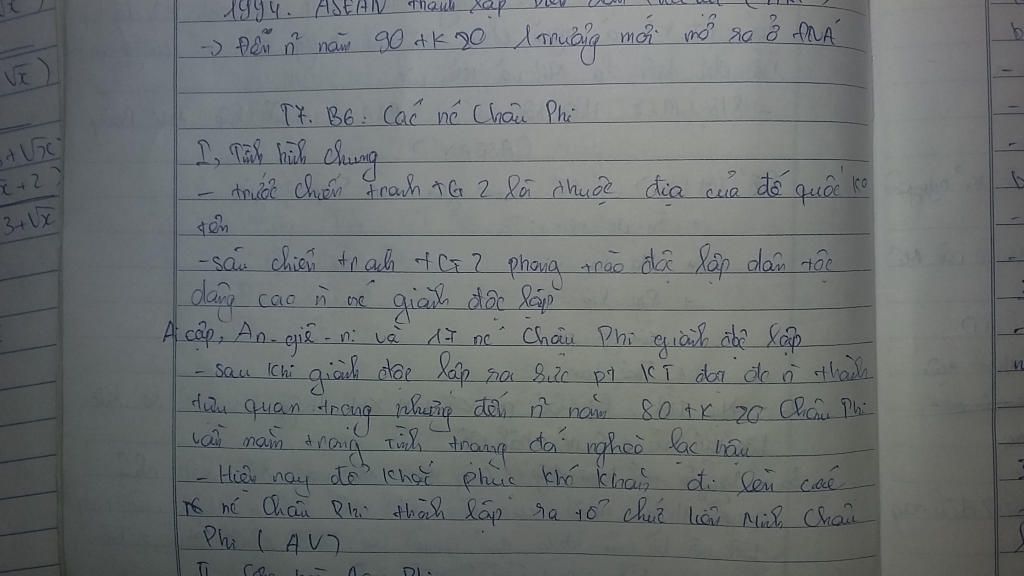 √x)
3+√x
x+2
3+√x
1994. ASEAN thành lập
-> Đến n² năm 90 TK 20 1 trưởng mới mở ra ở ĐNÁ
T7. B6: Các nc Châu Phi
I, Tình hình chung
- trước chiến tranh TG 2 là thuộc địa của đế quốc
- sau chiến tranh TG 2 phong trào độc lập dân tộc
dâng cao n nc giành độc lập
Ai cập, An-giê-ri và 17 nc Châu Phi giành độc lập
- sau khi giành độc lập ra sức pt KT đạt đc n thành
tựu quan trọng nhưng đến n² năm 80 TK 20 Châu Phi
vẫn nằm trong tình trạng đói nghèo lạc hậu
- Hiện nay để khắc phục khó khăn đi lên các
nc Châu Phi thành lập ra tổ chức liên minh Châu
Phi (AU)